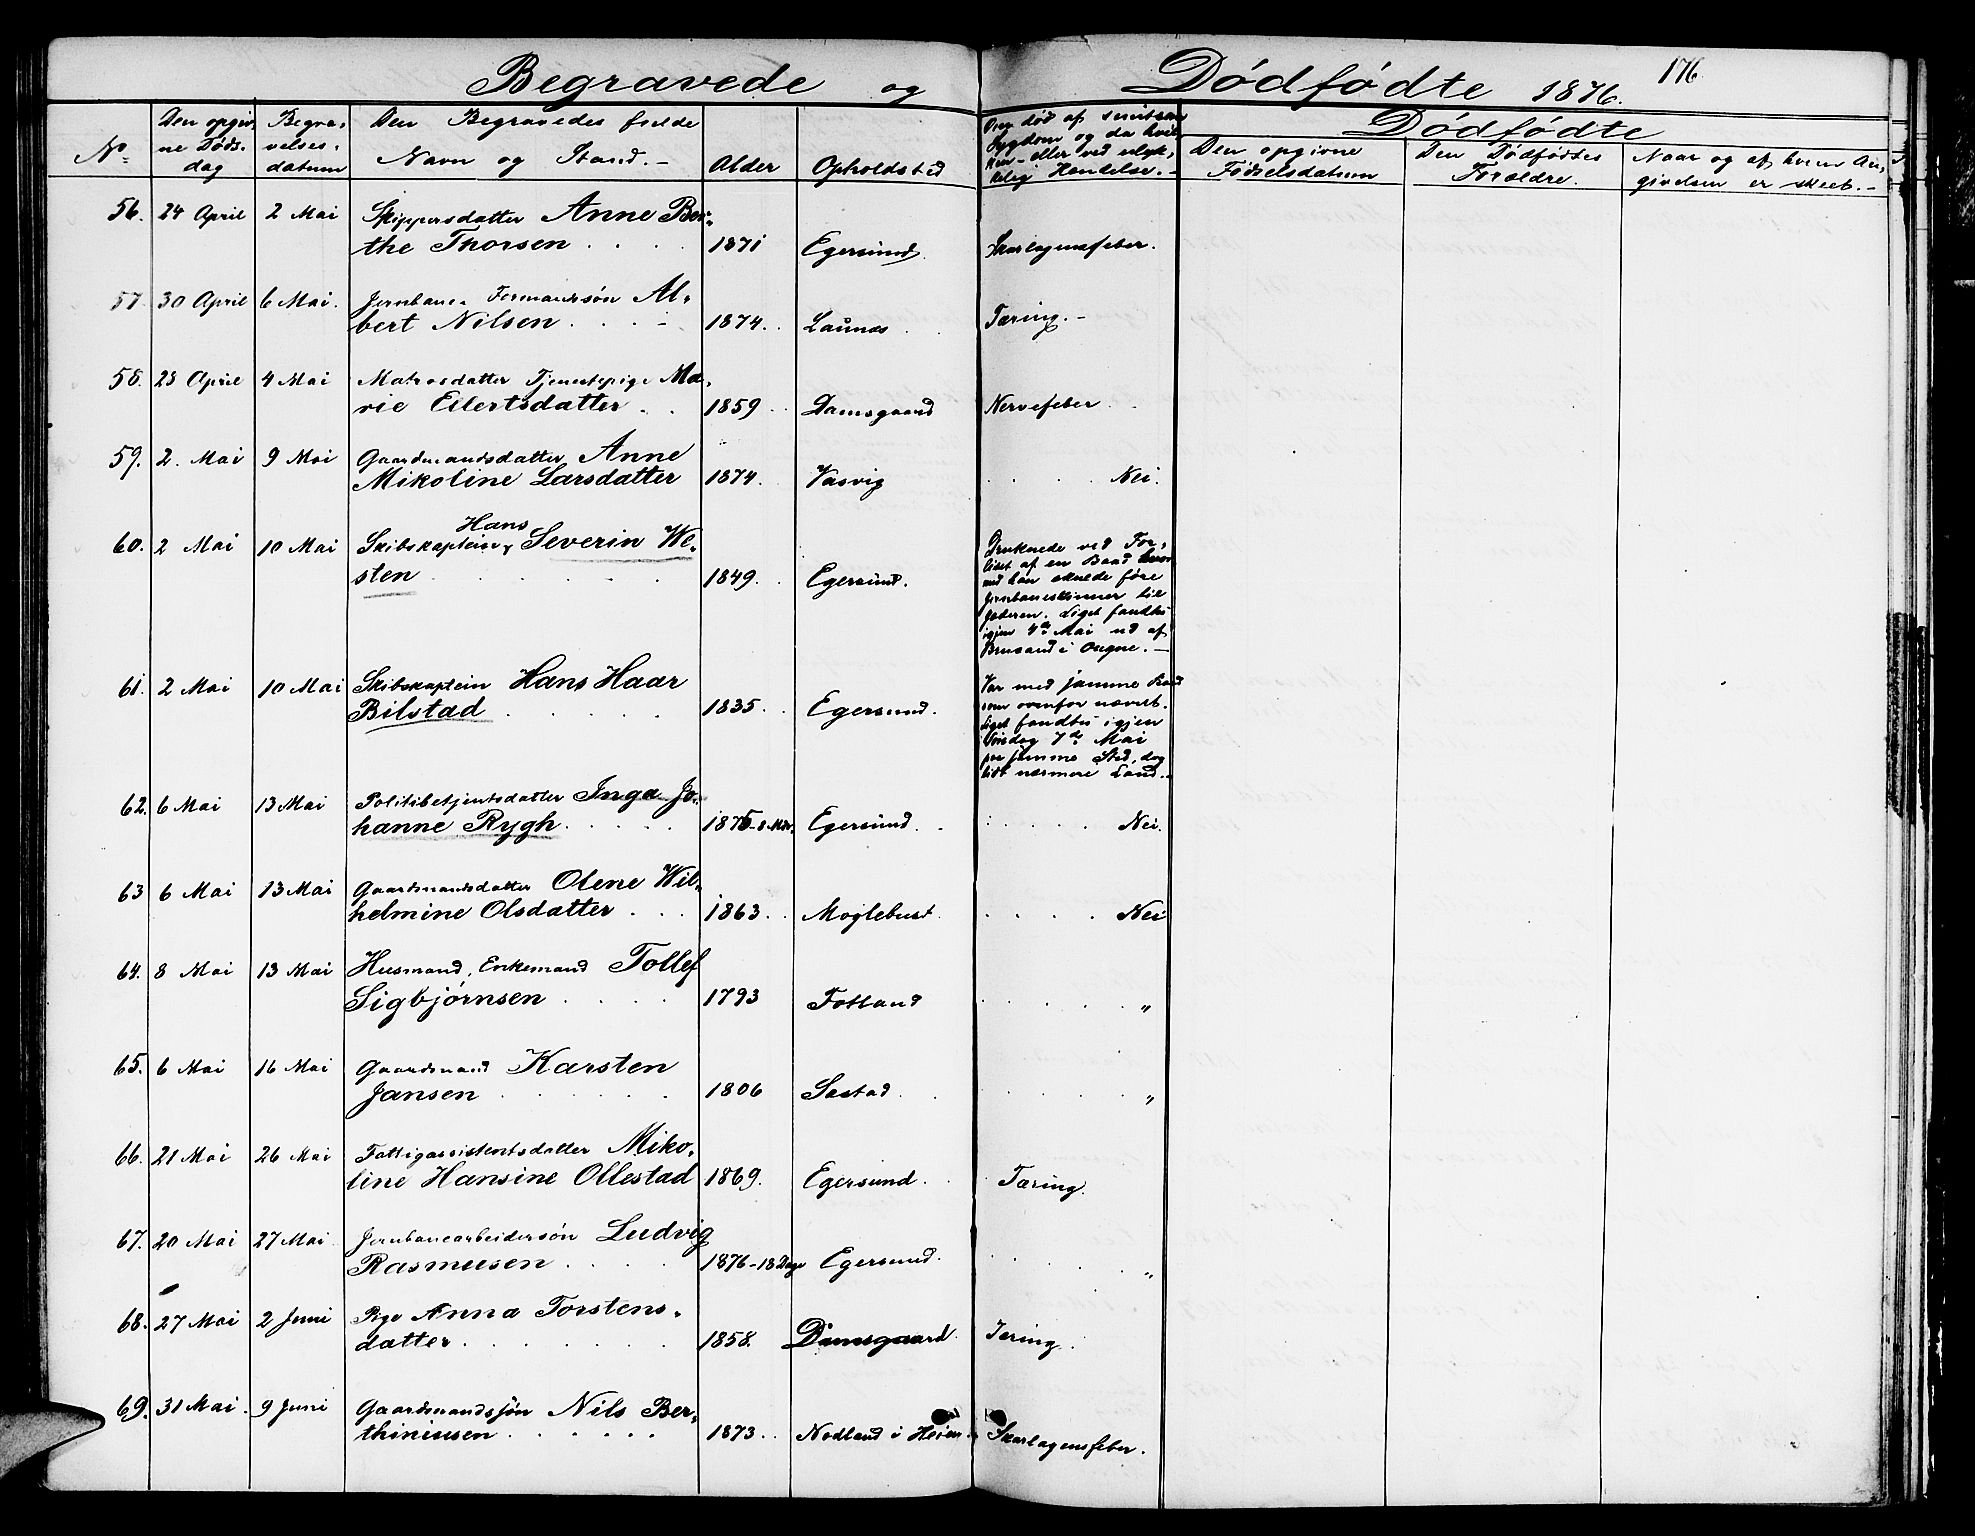 Begravede og Dødfødte 1876. 176.
No
Den opgiv-
ne Døds-
dag
Begra-
velses-
datum
Den Begravedes fulde
Navn og Stand. -
Alder
Opholdsted
Om død af smitsom
Sygdom og da hvil-
ken - eller ved ulyk-
kelig Hændelse. -
Dødfødte
Den opgivne
Fødselsdatum
Den Dødfødtes
Forældre.
Naar og af hvem An-
givelsen er skeet. -
56. 24 April 2 Mai Skippersdatter Anne Ber-
the Thorsen 1871 Egersund. Skarlagensfeber.
57. 30 April 6 Mai. Jernbane Formandssøn Al-
bert Nilsen 1874. Launes Tæring. -
58. 28 April 4 Mai Matrosdatter Tjenestepige Ma-
rie Eilertsdatter 1859 Damsgaard Nervefeber
59. 2. Mai 9 Mai Gaardmandsdatter Anne
Mikoline Larsdatter 1874. Vasvig Nei.
Hans
60. 2 Mai 10 Mai Skibskaptein, Severin We-
sten 1849. Egersund.
Druknede ved For-
liset af en Baad hvor
med han skulde føre
Jernbaneskinner til
Jæderen. Liget fandtes
igjen 4de Mai ud af
Brusand i Ougne. -
61. 2 Mai 10 Mai Skibskaptein Hans Haar
Bilstad 1835. Egersund.
Var med samme Baad
som ovenfor nævnt.
Liget fandtes igjen
Søndag 7de Mai
paa samme Sted, dog
lidt nærmere Land. -
62. 6 Mai 13 Mai Politibetjentsdatter Inga Jo-
hanne Rygh 1875 - 8 Mdr. Egersund. Nei.
63 6 Mai 13 Mai Gaardmandsdatter Olene Wil-
helmine Olsdatter 1863. Moglebust Nei
64. 8 Mai 13 Mai Husmand, Enkemand Tollef
Sigbjørnsen 1793 Fotland "
65. 6 Mai 16 Mai Gaardmand Karsten
Jansen 1806 Sæstad "
66. 21 Mai 26 Mai Fattigassistentsdatter Miko-
line Hansine Ollestad 1869. Egersund Tæring.
67. 20 Mai 27 Mai Jernbanearbeidersøn Ludvig
Rasmusen 1876 - 18 Dage Egersund. "
68. 27 Mai 2 Juni Pige Anna Torstens-
datter 1858. Damsgaard Tæring.
69. 31 Mai. 9 Juni Gaardmandssøn Nils Ber-
thiniusen 1873. Nodland i Heien Skarlagensfeber.